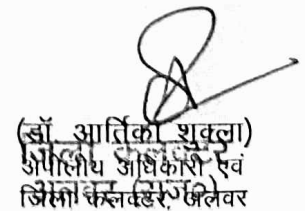 (डॉ. आर्तिका शुक्ला)
जिला कलक्टर
अपीलीय अधिकारी एवं
अलवर (राज.)
जिला कलक्टर, अलवर